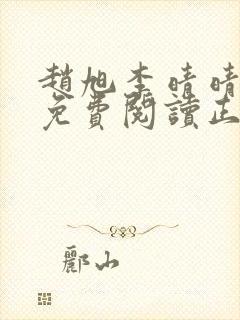 趙旭李晴晴
免費閱讀正
酈山